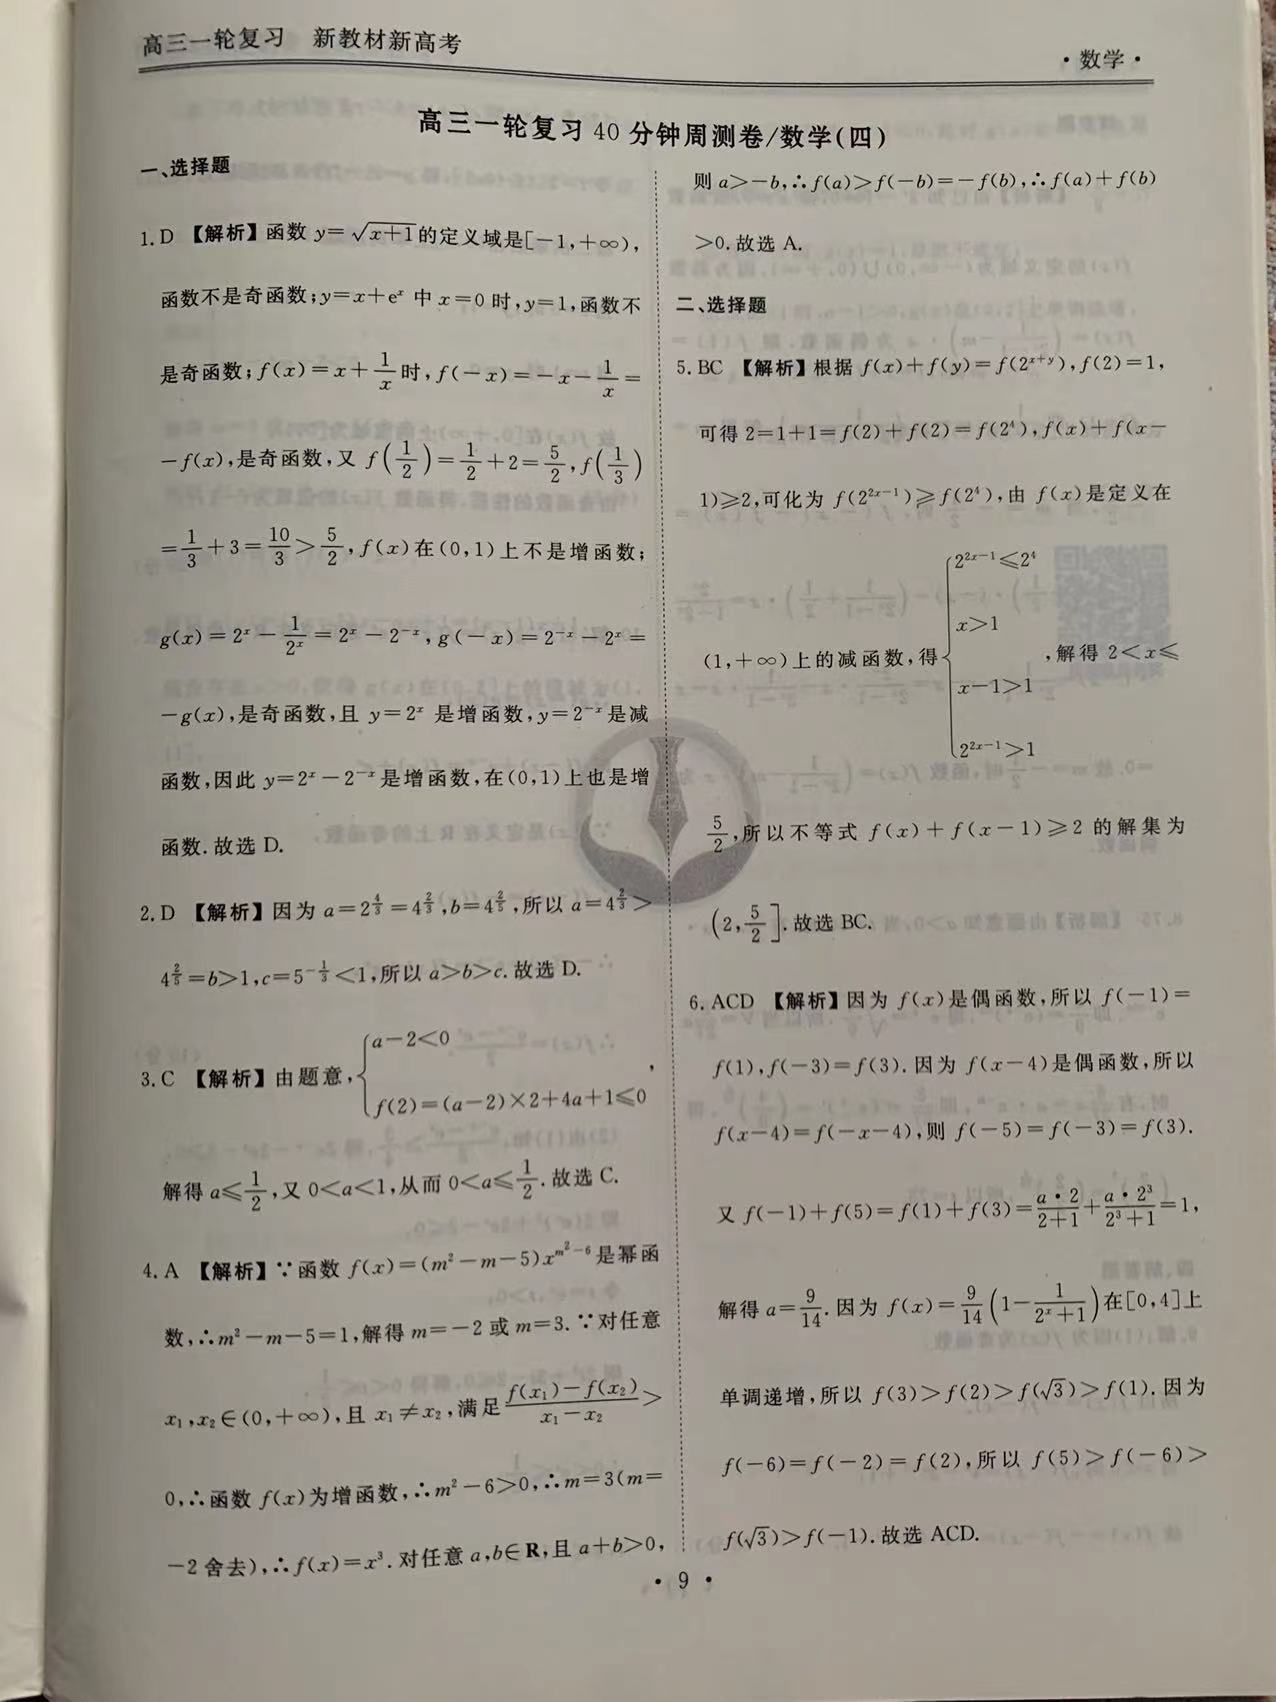 高三一轮复习 新教材新高考
·数学·
高三一轮复习40分钟周测卷/数学(四)
一、选择题
1.D 【解析】函数 y=√(x+1)的定义域是[-1,+∞),
函数不是奇函数;y=x+eˣ 中 x=0 时,y=1,函数不
是奇函数;f(x)=x+1/x时,f(-x)=-x-1/x=
-f(x),是奇函数,又 f(1/2)=1/2+2=5/2,f(1/3)
=1/3+3=10/3>5/2,f(x)在(0,1)上不是增函数;
g(x)=2ˣ-1/2ˣ=2ˣ-2⁻ˣ,g(-x)=2⁻ˣ-2ˣ=
-g(x),是奇函数,且 y=2ˣ 是增函数,y=2⁻ˣ是减
函数,因此 y=2ˣ-2⁻ˣ是增函数,在(0,1)上也是增
函数.故选 D.
2.D 【解析】因为 a=2^(4/3)=4^(2/3),b=4^(2/5),所以 a=4^(2/3)>
4^(2/5)=b>1,c=5^(-1/3)<1,所以 a>b>c.故选 D.
3.C 【解析】由题意,{a-2<0
f(2)=(a-2)×2+4a+1≤0,
解得 a≤1/2,又 0<a<1,从而 0<a≤1/2.故选 C.
4.A 【解析】∵函数 f(x)=(m²-m-5)x^(m²-6)是幂函
数,∴m²-m-5=1,解得 m=-2 或 m=3.∵对任意
x₁,x₂∈(0,+∞),且 x₁≠x₂,满足(f(x₁)-f(x₂))/(x₁-x₂)>
0,∴函数 f(x)为增函数,∴m²-6>0,∴m=3(m=
-2 舍去),∴f(x)=x³.对任意 a,b∈R,且 a+b>0,
则 a>-b,∴f(a)>f(-b)=-f(b),∴f(a)+f(b)
>0.故选 A.
二、选择题
5.BC 【解析】根据 f(x)+f(y)=f(2^(x+y)),f(2)=1,
可得 2=1+1=f(2)+f(2)=f(2⁴),f(x)+f(x-
1)≥2,可化为 f(2^(2x-1))≥f(2⁴),由 f(x)是定义在
(1,+∞)上的减函数,得{2^(2x-1)≤2⁴
x>1
x-1>1
2^(2x-1)>1
,解得 2<x≤
5/2,所以不等式 f(x)+f(x-1)≥2 的解集为
(2,5/2].故选 BC.
6.ACD 【解析】因为 f(x)是偶函数,所以 f(-1)=
f(1),f(-3)=f(3).因为 f(x-4)是偶函数,所以
f(x-4)=f(-x-4),则 f(-5)=f(-3)=f(3).
又 f(-1)+f(5)=f(1)+f(3)=(a·2)/(2+1)+(a·2³)/(2³+1)=1,
解得 a=9/14.因为 f(x)=9/14(1-1/(2ˣ+1))在[0,4]上
单调递增,所以 f(3)>f(2)>f(√3)>f(1).因为
f(-6)=f(-2)=f(2),所以 f(5)>f(-6)>
f(√3)>f(-1).故选 ACD.
·9·